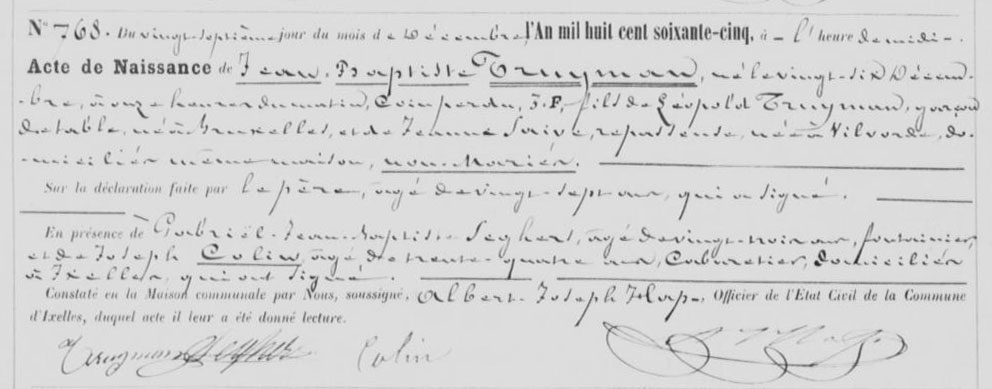 N° 768. Du vingt-septième jour du mois de Décembre, l'An mil huit cent soixante-cinq, à - l'heure de midi -.
Acte de Naissance de Jean-Baptiste Truyman, né le vingt-six Décem-
-bre, à onze heures du matin, Coin perdu, 3.F, fils de Léopold Truyman, garçon
de table, né à Bruxelles, et de Jeanne Saive, repasseuse, née à Vilvorde, do-
-miciliés même maison, non-Mariés.
Sur la déclaration faite par le père, âgé de vingt-sept ans, qui a signé.
En présence de Gabriël-Jean-Baptiste Seghers, âgé de vingt-trois ans, fontainier,
et de Joseph Colin, âgé de trente-quatre ans, Cabaretier, domiciliés
à Ixelles, qui ont signé.
Constaté en la Maison communale par Nous, soussigné, Albert-Joseph Hap, Officier de l'État Civil de la Commune
d'Ixelles, duquel acte il leur a été donné lecture.
Truyman Seghers Colin